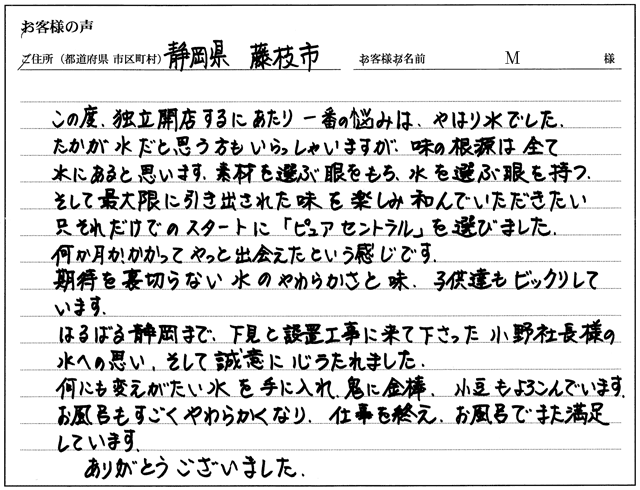 お客様の声
ご住所（都道府県 市区町村） 静岡県 藤枝市 お客様お名前 M 様
この度、独立開店するにあたり一番の悩みは、やはり水でした。
たかが水だと思う方もいらっしゃいますが、味の根源は全て
水にあると思います。素材を選ぶ眼をもち、水を選ぶ眼を持つ。
そして最大限に引き出された味を楽しみ和んでいただきたい
只それだけでのスタートに「ピュアセントラル」を選びました。
何か月かかかってやっと出会えたという感じです。
期待を裏切らない水のやわらかさと味、子供達もビックリして
います。
はるばる静岡まで、下見と設置工事に来て下さった小野社長様の
水への思い、そして誠意に心うたれました。
何にも変えがたい水を手に入れ、鬼に金棒、小豆もよろこんでいます。
お風呂もすごくやわらかくなり、仕事を終え、お風呂でまた満足
しています。
ありがとうございました。